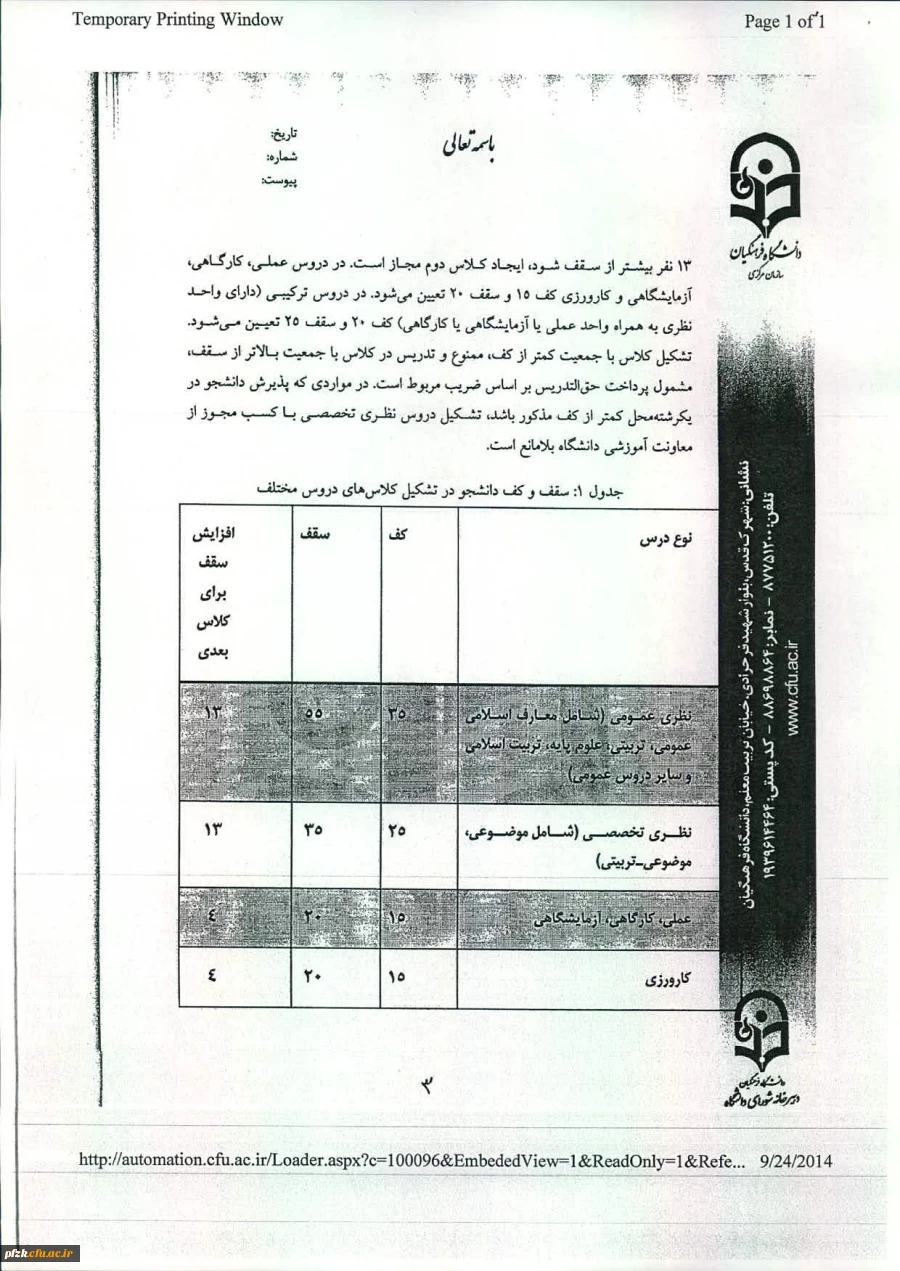 Temporary Printing Window
Page 1 of 1
باسمه تعالی
تاریخ:
شماره:
پیوست:
دانشگاه فرهنگیان
سازمان مرکزی
۱۳ نفر بیشتر از سقف شود، ایجاد کلاس دوم مجاز است. در دروس عملی، کارگاهی،
آزمایشگاهی و کارورزی کف ۱۵ و سقف ۲۰ تعیین می‌شود. در دروس ترکیبی (دارای واحد
نظری به همراه واحد عملی یا آزمایشگاهی یا کارگاهی) کف ۲۰ و سقف ۲۵ تعیین می‌شود.
تشکیل کلاس با جمعیت کمتر از کف، ممنوع و تدریس در کلاس با جمعیت بالاتر از سقف،
مشمول پرداخت حق‌التدریس بر اساس ضریب مربوط است. در مواردی که پذیرش دانشجو در
یکرشته‌محل کمتر از کف مذکور باشد، تشکیل دروس نظری تخصصی با کسب مجوز از
معاونت آموزشی دانشگاه بلامانع است.
جدول ۱: سقف و کف دانشجو در تشکیل کلاس‌های دروس مختلف
نوع درس کف سقف افزایش
سقف
برای
کلاس
بعدی
نظری عمومی (شامل معارف اسلامی ۳۵ ۵۵ ۱۳
عمومی، تربیتی، علوم پایه، تربیت اسلامی
و سایر دروس عمومی)
نظری تخصصی (شامل موضوعی، ۲۵ ۳۵ ۱۳
موضوعی-تربیتی)
عملی، کارگاهی، آزمایشگاهی ۱۵ ۲۰ ٤
کارورزی ۱۵ ۲۰ ٤
نشانی: شهرک قدس، بلوار شهید فرحزادی، خیابان تربیت معلم، دانشگاه فرهنگیان
تلفن: ۸۷۷۵۱۲۰۰ – نمابر: ۸۸۶۹۸۸۶۴ – کد پستی: ۱۹۳۹۶۱۴۴۶۴
www.cfu.ac.ir
دانشگاه فرهنگیان
دبیرخانه شورای دانشگاه
۳
http://automation.cfu.ac.ir/Loader.aspx?c=100096&EmbededView=1&ReadOnly=1&Refe... 9/24/2014
pfzk.cfu.ac.ir